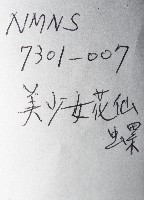 NMNS
7301-007
美少女花仙
螺